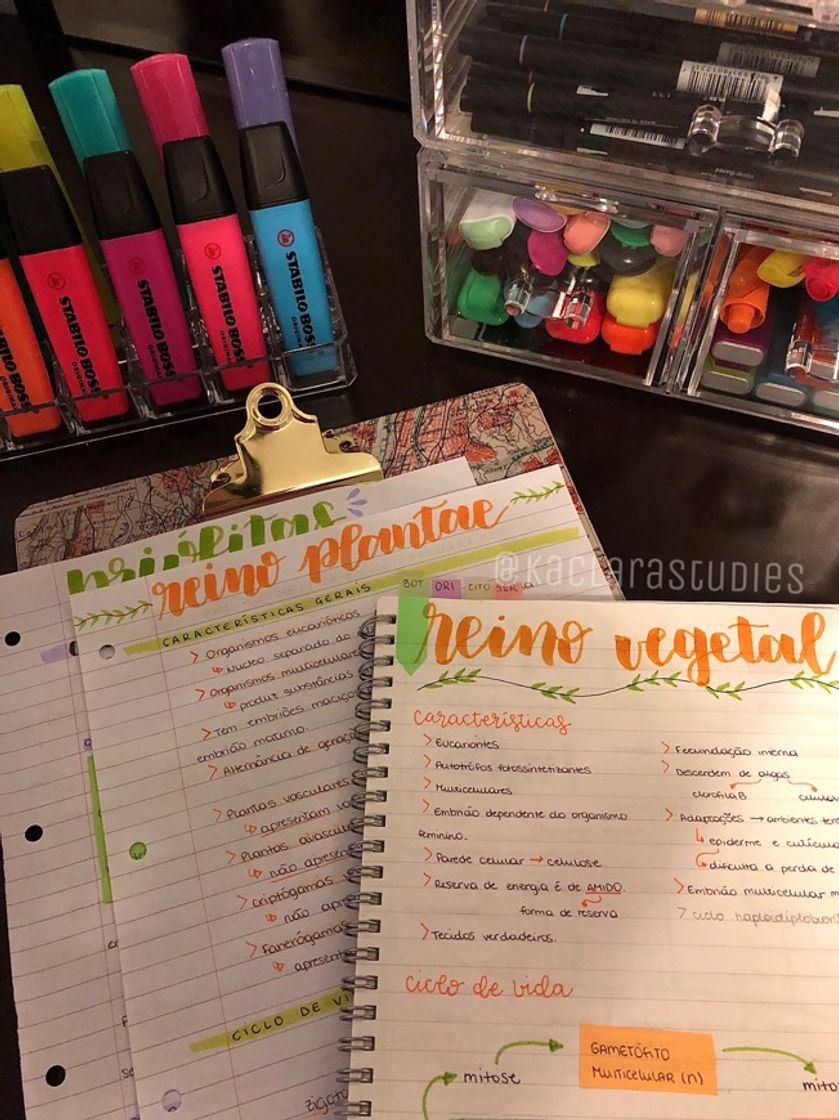 STABILO BOSS
ORIGINAL
STABILO BOSS
ORIGINAL
STABILO BOSS
ORIGINAL
STABILO BOSS
ORIGINAL
STABILO BOSS
ORIGINAL
@KACLARASTUDIES
briófitas
reino plantae
CARACTERÍSTICAS GERAIS
BOT ORI CITO
> Organismos eucarióticos
↳ Núcleo separado do
> Organismos multicelulares
↳ produz substâncias
> Tem embriões maciços
embrião materno.
> Alternância de
> Plantas vasculares
↳ apresentam
> Plantas
↳ não
> Criptógamas
↳ não
> Fanerógamas
↳
CICLO DE
zigoto
reino vegetal
características
> Eucariontes
> Autótrofos fotossintetizantes
> Multicelulares
> Embrião dependente do organismo
feminino.
> Parede celular → celulose
> Reserva de energia é de AMIDO.
forma de reserva
> Tecidos verdadeiros.
> Fecundação interna
> Descendem de algas
clorofila B
> Adaptações → ambientes
↳ epiderme e
↳ dificulta a perda de
> Embrião multicelular
> ciclo
ciclo de vida
mitose
GAMETÓFITO
MULTICELULAR (n)